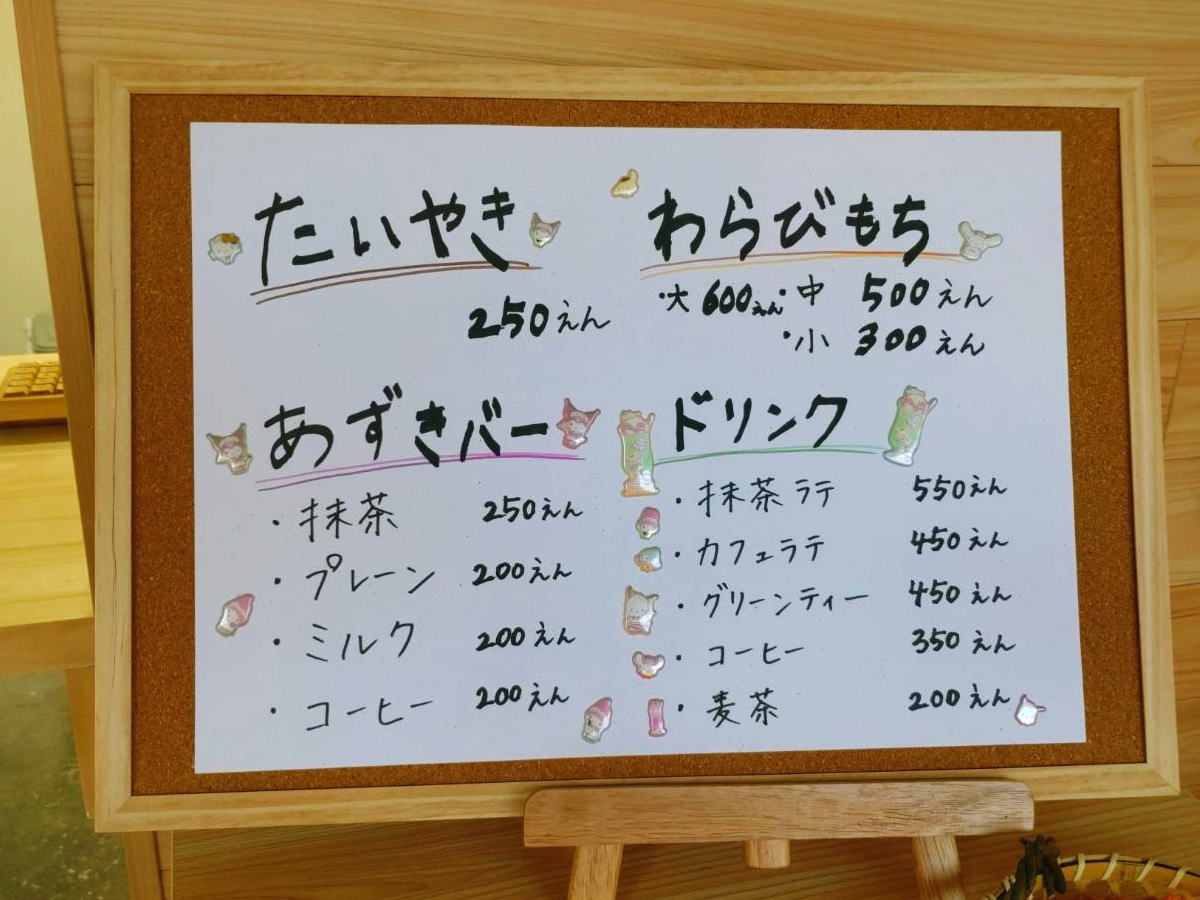 たいやき
250えん
わらびもち
・大 600えん ・中 500えん
・小 300えん
あずきバー
・抹茶 250えん
・プレーン 200えん
・ミルク 200えん
・コーヒー 200えん
ドリンク
・抹茶ラテ 550えん
・カフェラテ 450えん
・グリーンティー 450えん
・コーヒー 350えん
・麦茶 200えん